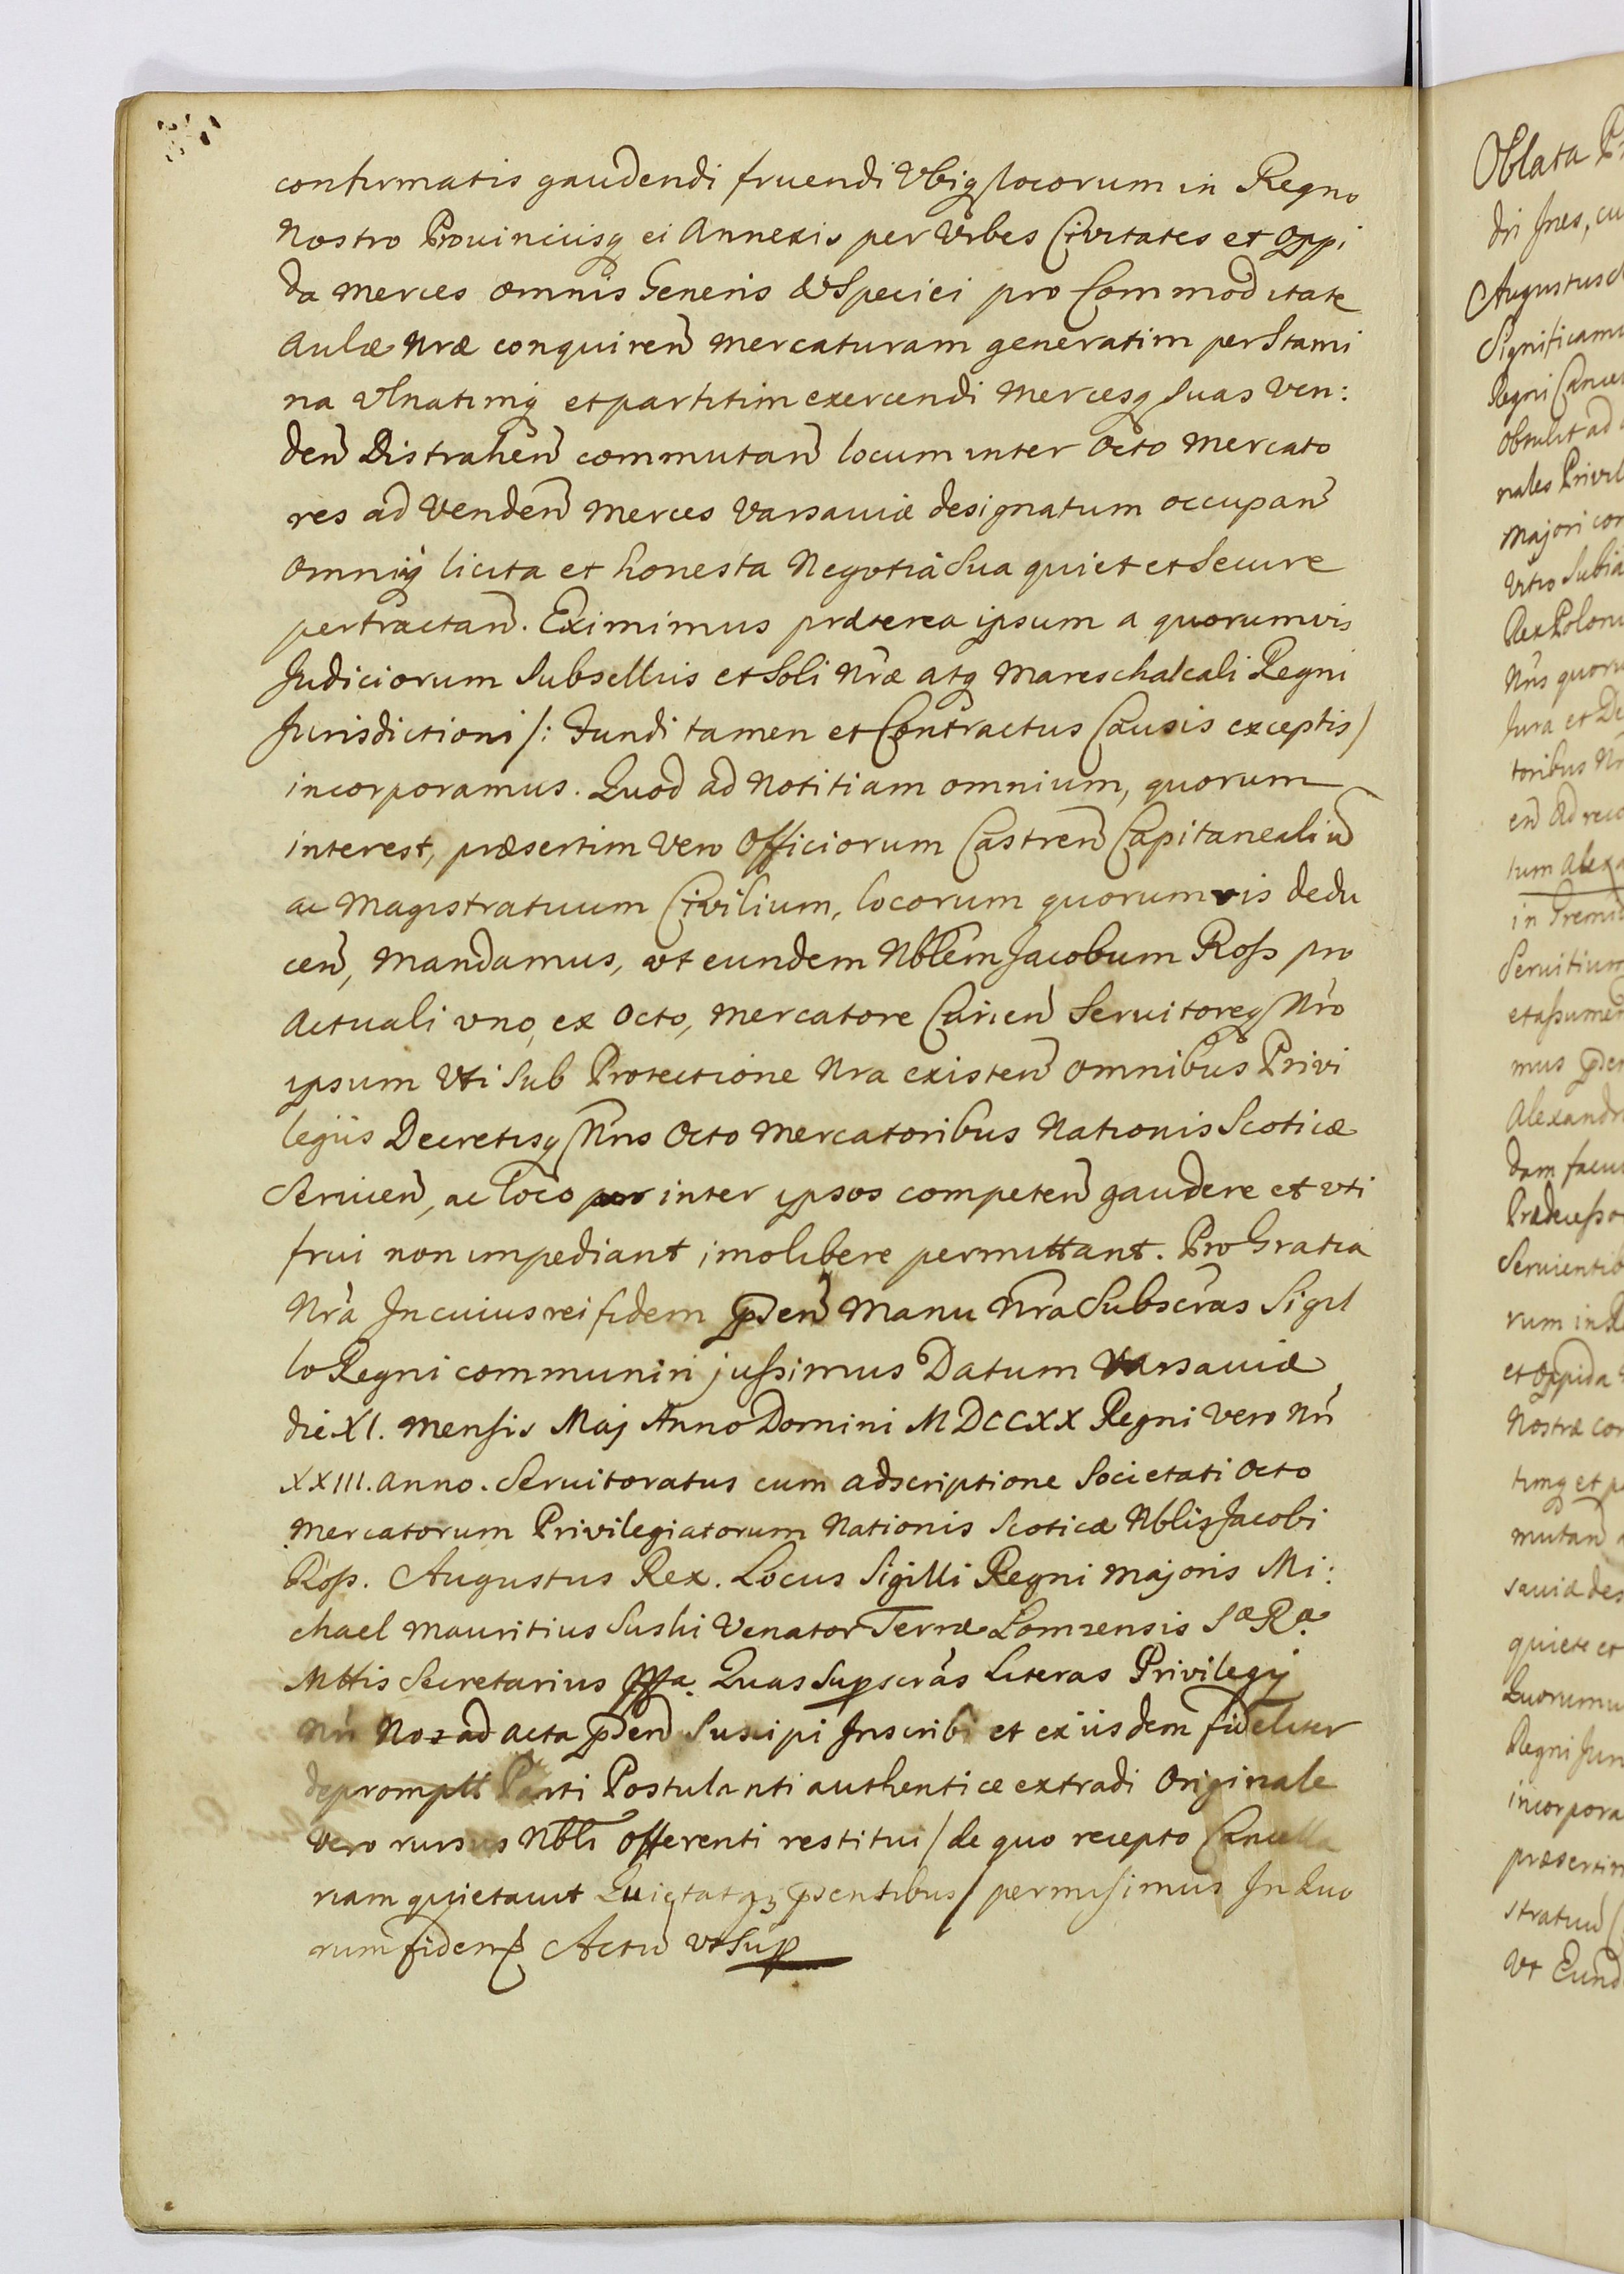 confirmatis gaudendi fruendi Vbiq locorum in Regno
Nostro Prouinciisq ei Annexis per Vrbes Civitates et Oppi
da merces omnis Generis & Speciei pro Commoditate
Aulæ Nræ conquiren mercaturam generatim per Stami
na Vlnatimq et partitim exercendi mercesq suas Ven:
den Distrahen commutan locum inter Octo Mercato
res ad Venden merces Varsaviæ designatum occupan
omniq licita et honesta Negotia Sua quiet et Secure
pertractan. Eximimus præterea ipsum a quorumvis
Judiciorum Subselliis et Soli Nræ atq Mareschalcali Regni
Jurisdictioni /: Fundi tamen et Contractus Causis exceptis /
incorporamus. Quod ad Notitiam omnium, quorum
interest, præsertim Vero Officiorum Castren Capitanealiu
ac Magistratuum Civilium, locorum quorumvis dedu
cen, Mandamus, vt eundem Nblem Jacobum Ross pro
Actuali vno, ex Octo, mercatore Curien Servitoreq Nro
ipsum Vti Sub Protectione Nra existen omnibus Privi
legiis Decretisq Nris Octo Mercatoribus Nationis Scoticæ
Servien, ac loco inter ipsos competen gaudere et vti
frui non impediant imo libere permittant. Pro Gratia
Nra In cuius rei fidem pden Manu Nra Subscras Sigil
lo Regni communiri jussimus Datum Varsaviæ
die XI. Mensis Maj Anno Domini MDCCXX Regni Vero Nri
XXIII. Anno. Servitoratus cum adscriptione Societati Octo
Mercatorum Privilegiatorum Nationis Scoticæ Nblis Jacobi
Ross. Augustus Rex. Locus Sigilli Regni Majoris Mi:
chael Mauritius Suski Venator Terræ Lomzensis Sæ Ræ
Mttis Secretarius Quas Supscras Literas Privilegij
Nri Nos ad Acta pden Suscipi Inscribi et ex iisdem fideliter
Parti Postulanti authentice extradi Originale
Vero rursus Nbli Offerenti restitui / de quo recepto Cancella
riam quietavit Quietatq psentibus / permisimus In Quo
rum fidem Actu vt Sup
Oblata
Augustus
Significamus
Regni
Obtulit ad
nales
Majori
Vitio
Rex
Nris
Jura et
toribus
tum
in
Servitium
mus
Alexandri
dam
rum in
et Oppida
Nostræ
timq et
mutan
quiete et
Regni
stratuu
Vt